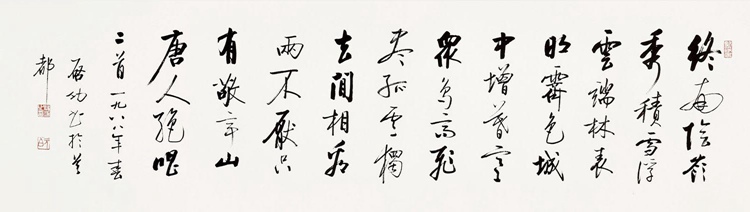 終南陰岺
秀積雪浮
雲端林表
明霽色城
中增暮寒
衆鳥高飛
盡孤雲獨
去閒相看
兩不厭只
有敬亭山
唐人絕唱
二首一九八八年春
啟功書於首
都